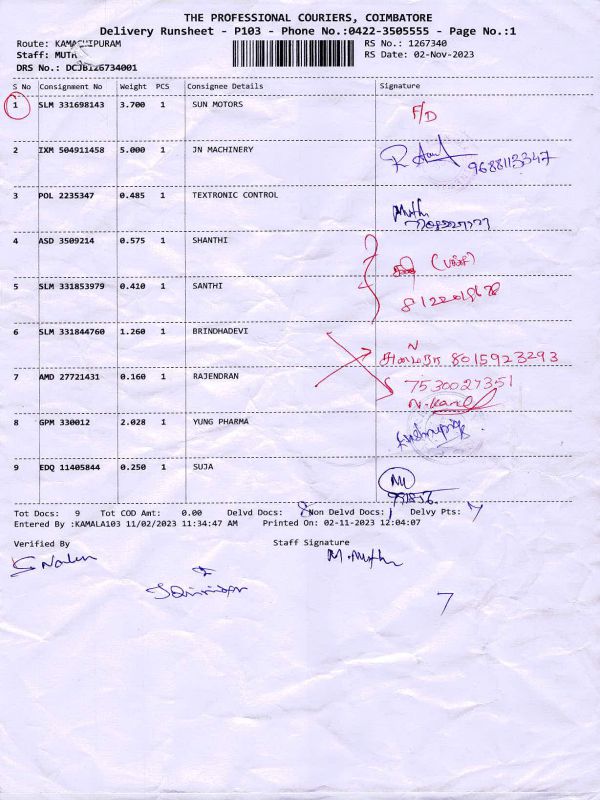 THE PROFESSIONAL COURIERS, COIMBATORE
Delivery Runsheet - P103 - Phone No.:0422-3505555 - Page No.:1
Route: KAMACHIPURAM RS No.: 1267340
Staff: MUTH RS Date: 02-Nov-2023
DRS No.: DCJB126734001
S No Consignment No Weight PCS Consignee Details Signature
1 SLM 331698143 3.700 1 SUN MOTORS F/D
2 IXM 504911458 5.000 1 JN MACHINERY 9688113347
3 POL 2235347 0.485 1 TEXTRONIC CONTROL Muthu
4 ASD 3509214 0.575 1 SHANTHI
5 SLM 331853979 0.410 1 SANTHI
6 SLM 331844760 1.260 1 BRINDHADEVI 8015923293
7 AMD 27721431 0.160 1 RAJENDRAN 7530027351
8 GPM 330012 2.028 1 YUNG PHARMA
9 EDQ 11405844 0.250 1 SUJA
Tot Docs: 9 Tot COD Amt: 0.00 Delvd Docs: 8 Non Delvd Docs: 1 Delvy Pts: 7
Entered By :KAMALA103 11/02/2023 11:34:47 AM Printed On: 02-11-2023 12:04:07
Verified By Staff Signature
M. Muthu
7